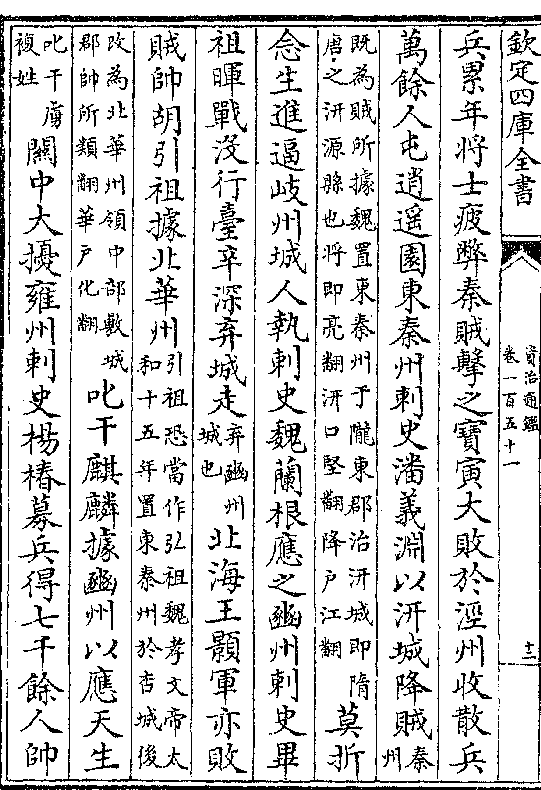 欽定四庫全書
資治通鑑
卷一百五十一
十二
兵累年將士疲弊秦賊擊之寶寅大敗於涇州收散兵
萬餘人屯逍遥園東秦州刺史潘義淵以汧城降賊
秦
州
既為賊所據魏置東秦州于隴東郡治汧城即隋
唐之汧源縣也將即亮翻汧口堅翻降户江翻
莫折
念生進逼岐州城人執刺史魏蘭根應之豳州刺史畢
祖暉戰没行臺辛深弃城走
弃豳州
城也
北海王顥軍亦敗
賊帥胡引祖據北華州
引祖恐當作弘祖魏孝文帝太
和十五年置東秦州於杏城後
改為北華州領中部敷城
郡帥所類翻華户化翻
叱干麒麟據豳州以應天生
叱干虜
複姓
關中大擾雍州刺史楊椿募兵得七千餘人帥